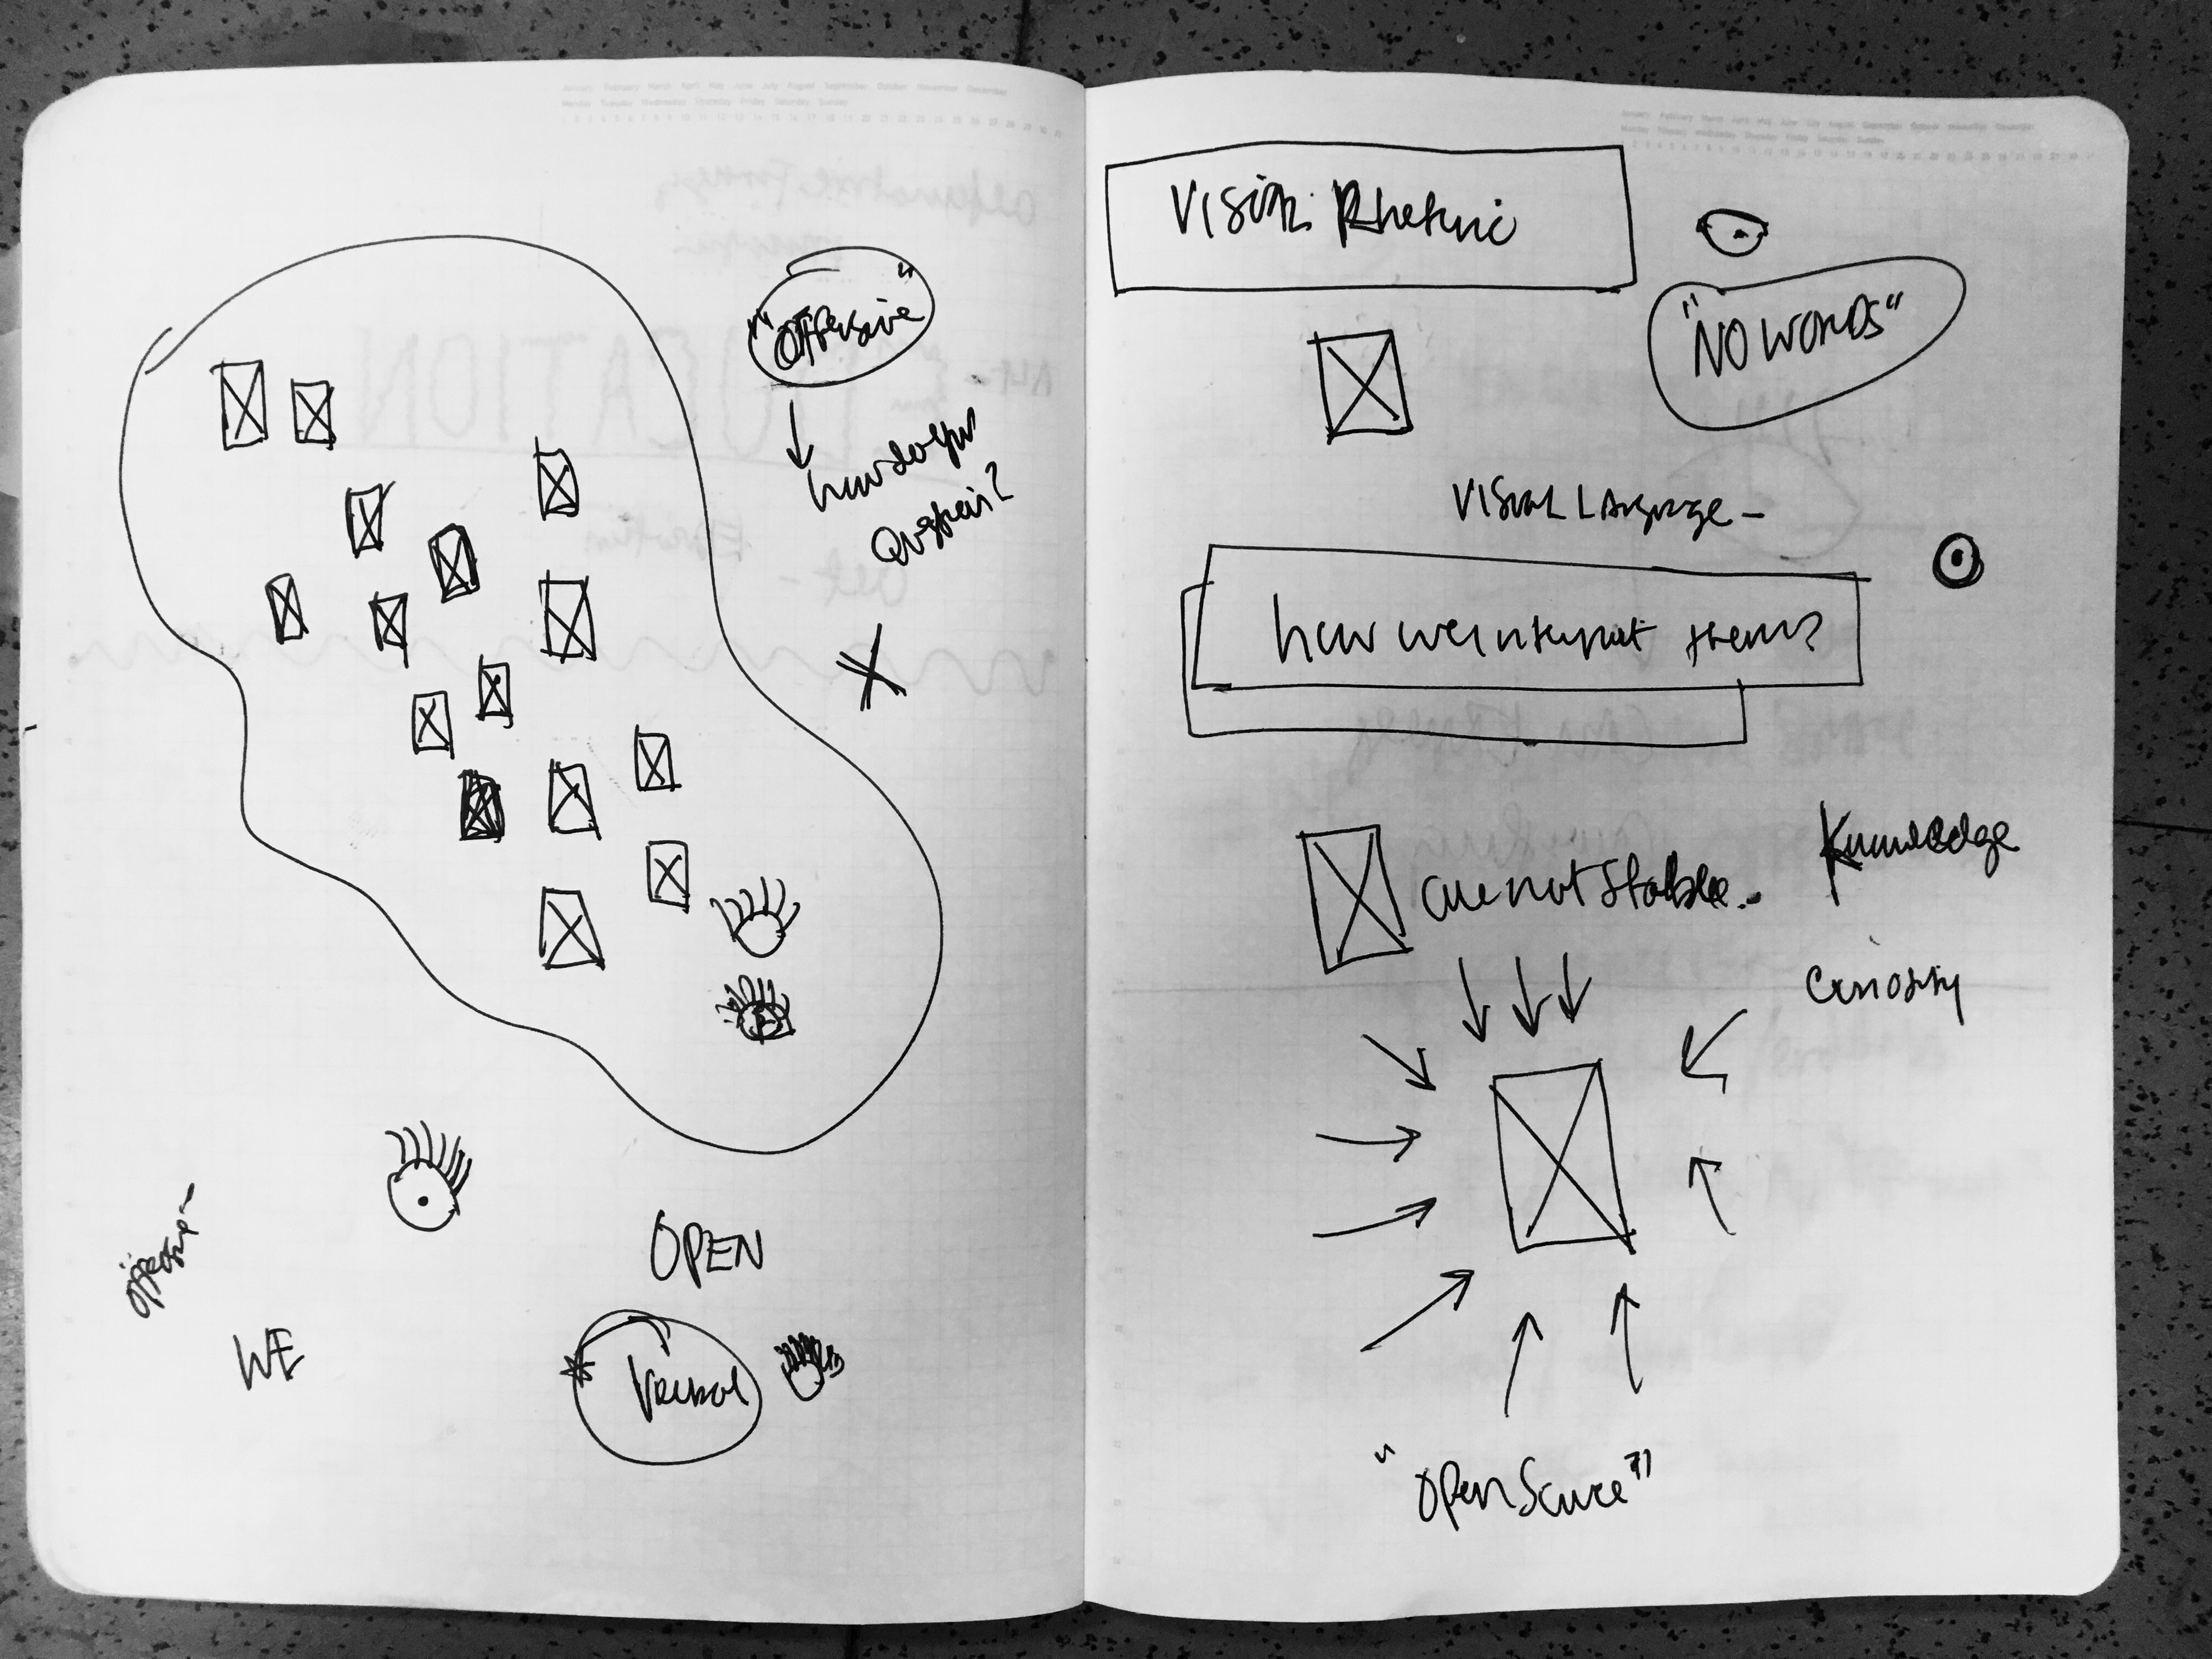 "Offensive"
how do you
Question?
offensive -
OPEN
WE
Visual Rhetoric
"NO WORDS"
VISUAL LANGUAGE -
how we interpret them?
are not stable.-
Knowledge
Curiosity
"Open Source"